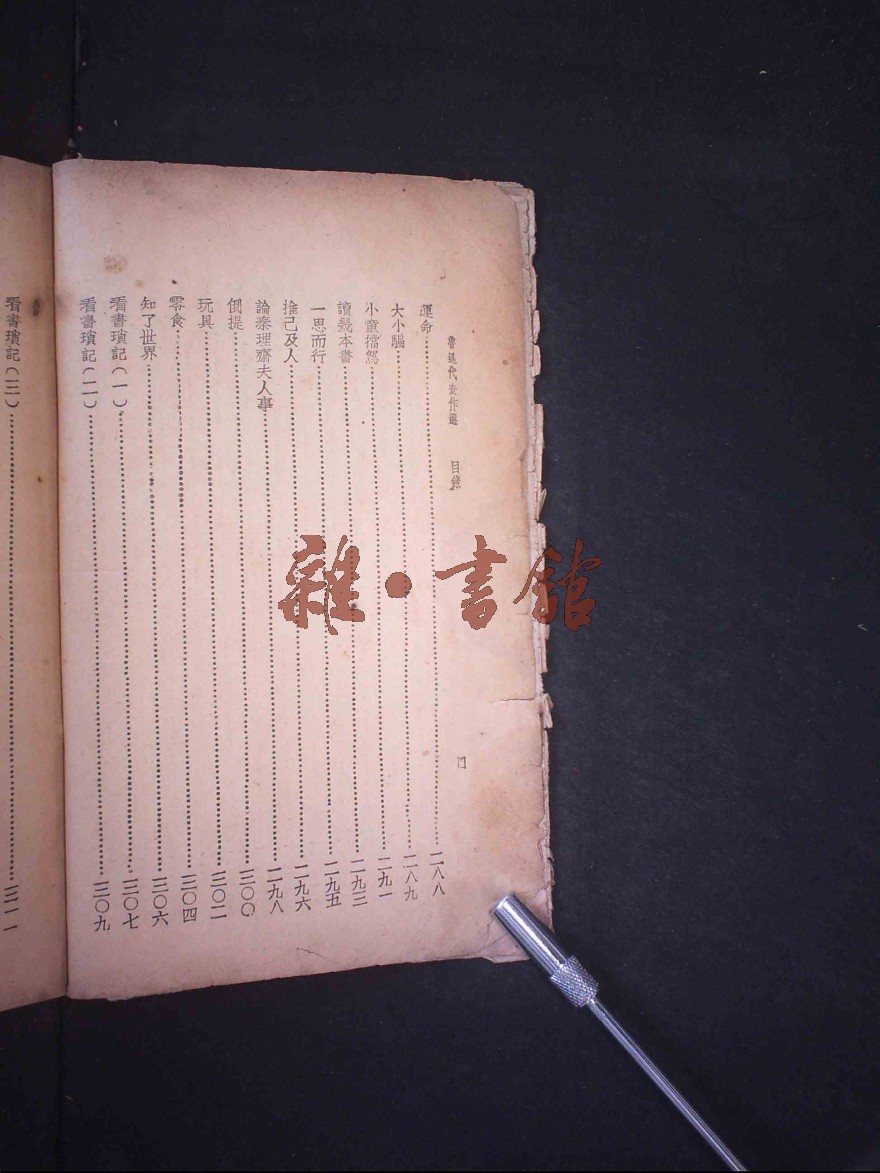 魯迅代表作選 目錄
四
運命…………二八八
大小騙…………二八九
小童擋駕…………二九一
讀幾本書…………二九三
一思而行…………二九五
推己及人…………二九六
論秦理齋夫人事…………二九八
倒提…………三〇〇
玩具…………三〇二
零食…………三〇四
知了世界…………三〇六
看書瑣記(一)…………三〇七
看書瑣記(二)…………三〇九
看書瑣記(三)…………三一一
雜·書館